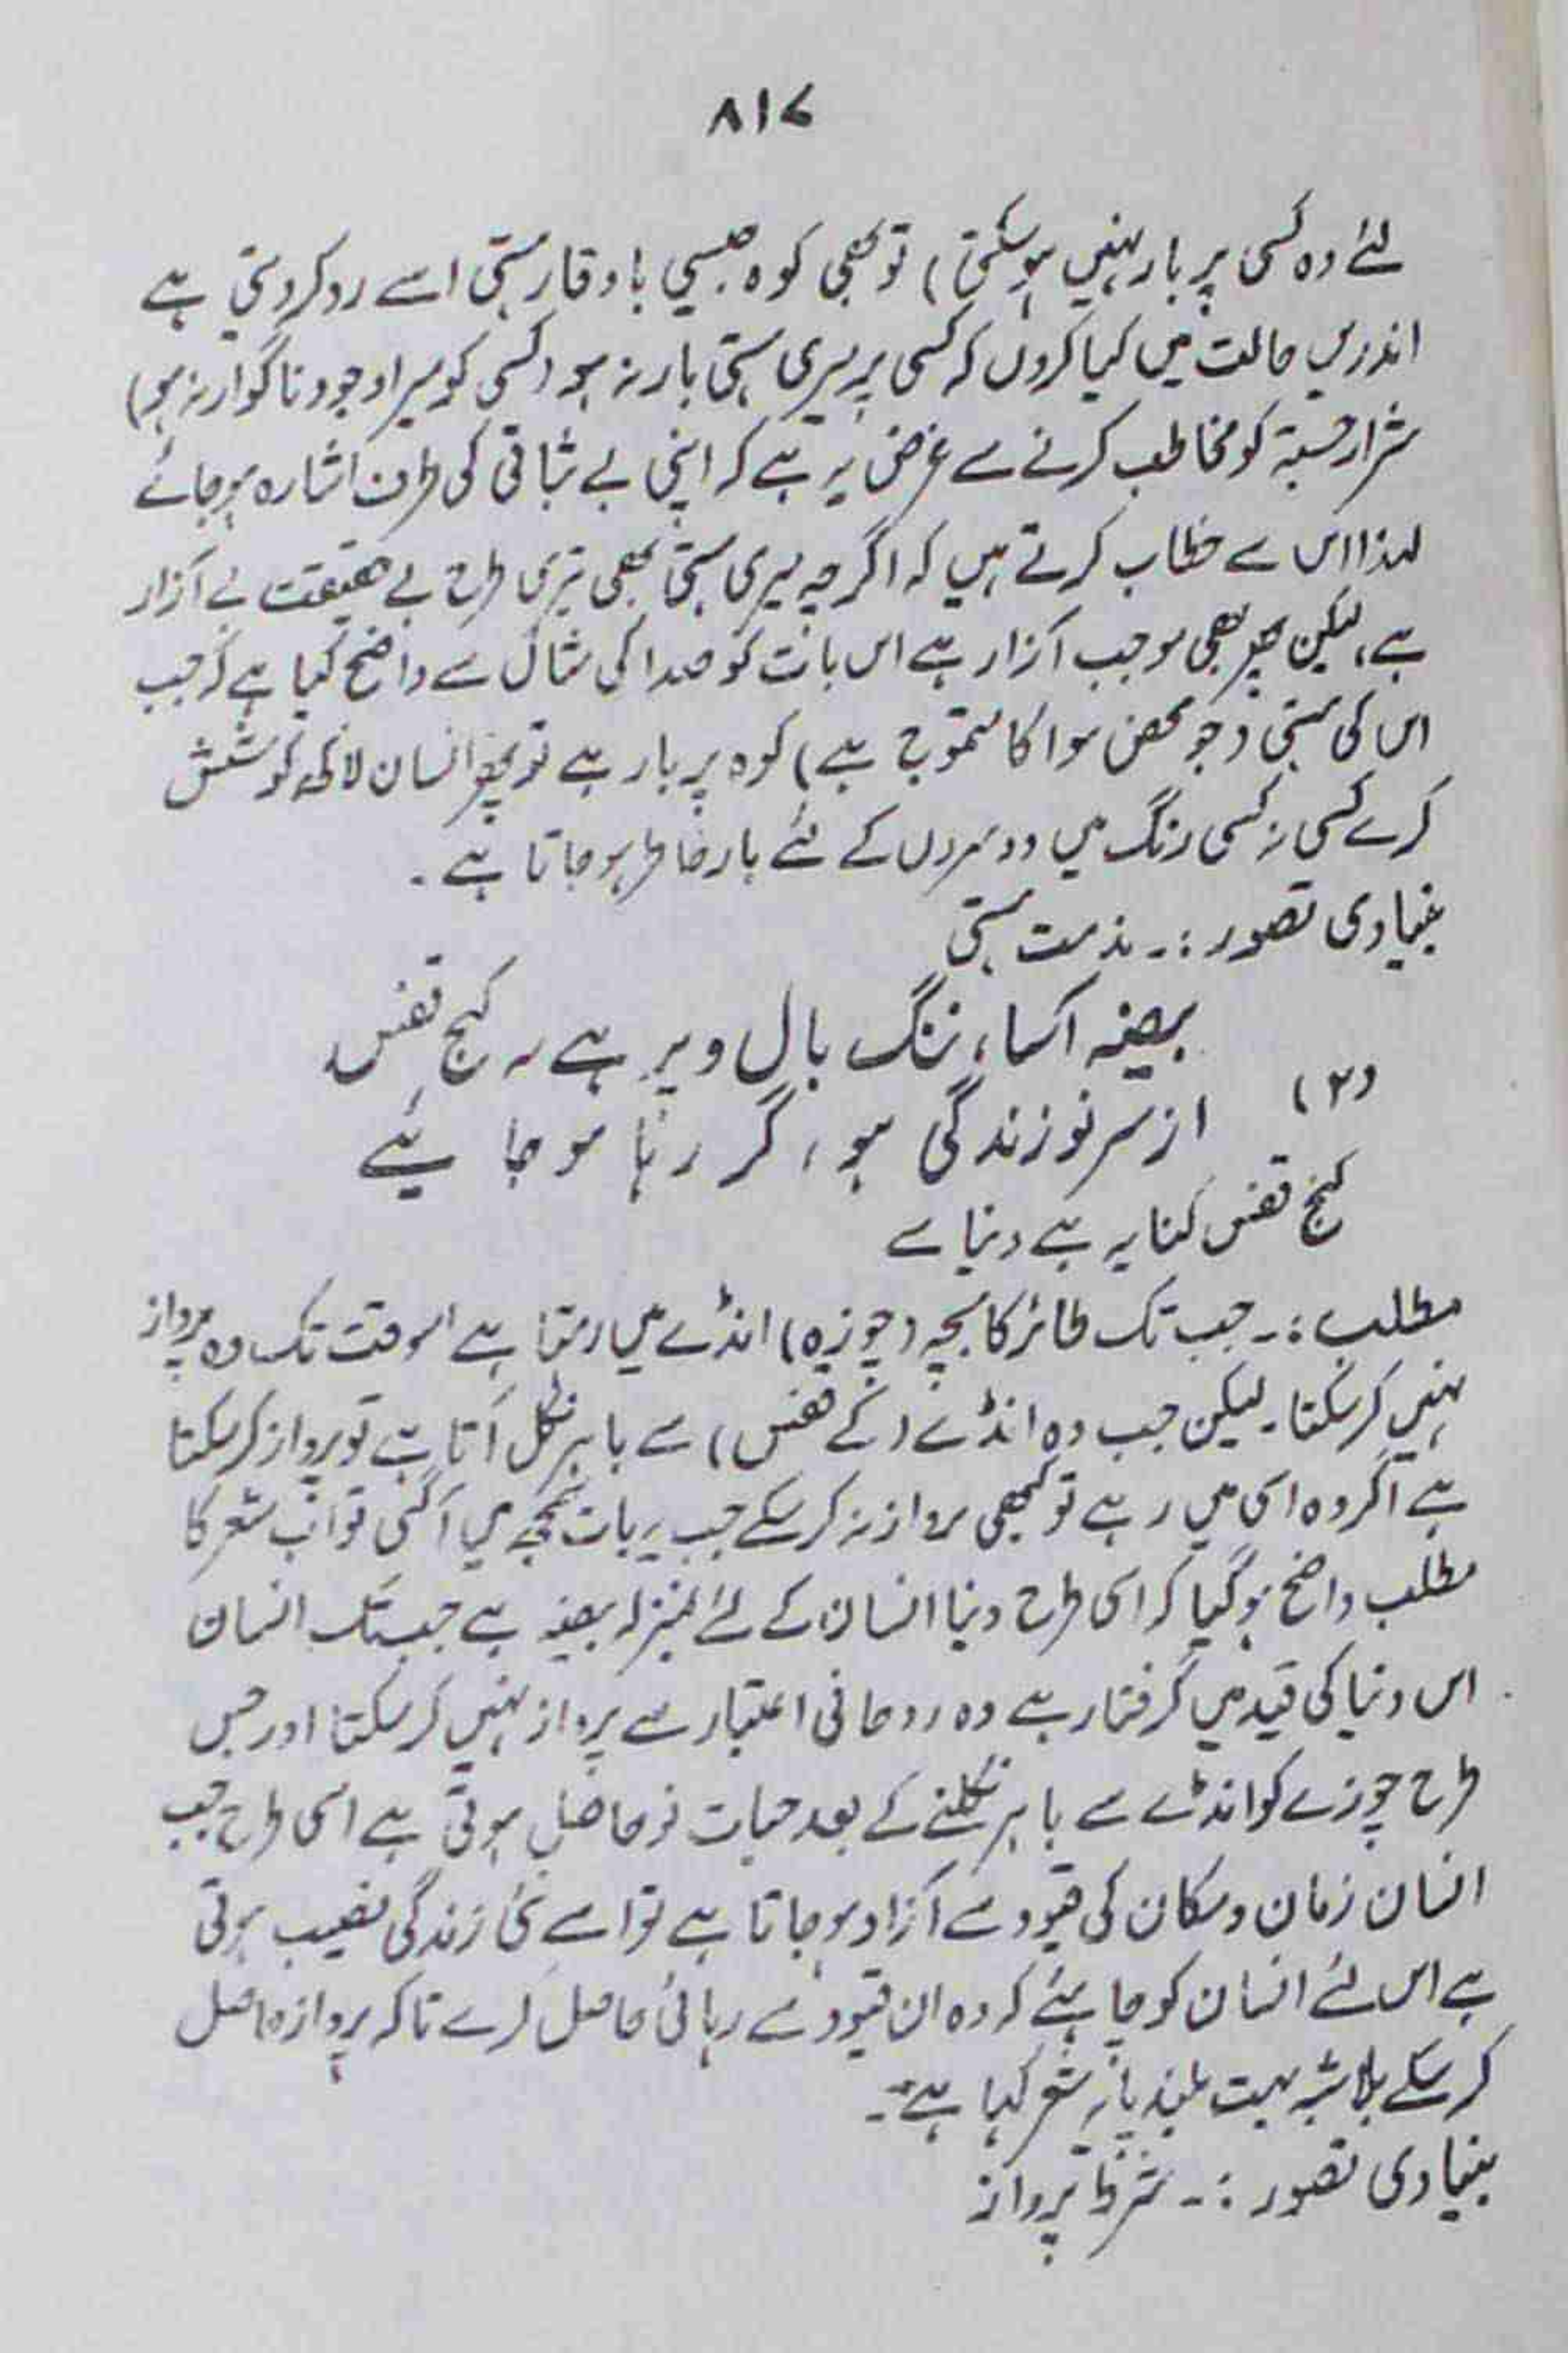 ۸۱۷
لئے وہ کسی پر بار نہیں ہو سکتی) تو بھی کوہ جیسی با وقار ہستی اسے رد کر دیتی ہے
اندریں حالت میں کیا کروں کہ کسی پر میری ہستی بار نہ ہو (کسی کو میرا وجود ناگوار نہ ہو)
شرار جستہ کو مخاطب کرنے سے غرض یہ ہے کہ اپنی بے ثباتی کی طرف اشارہ ہو جائے
لہذا اس سے خطاب کرتے ہیں کہ اگرچہ میری ہستی بھی تیری طرح بے حقیقت بے آزار
ہے، لیکن پھر بھی موجب آزار ہے اس بات کو صدا کی مثال سے واضح کیا ہے کہ جب
اس کی ہستی (جو محض ہوا کا تموج ہے) کوہ پر بار ہے تو پھر انسان لاکھ کوشش
کرے کسی نہ کسی رنگ میں دوسروں کے لئے بار خاطر ہو جاتا ہے۔
بنیادی تصور :۔ مذمت ہستی
بیضہ آسا، ننگ بال و پر ہے یہ کنج قفس
(۲) از سر نو زندگی ہو، گر رہا ہو جا ئیے
کنج قفس کنایہ ہے دنیا سے
مطلب :۔ جب تک طائر کا بچہ (چوزہ) انڈے میں رہتا ہے اسوقت تک وہ پرواز
نہیں کر سکتا۔ لیکن جب وہ انڈے (کے قفس) سے باہر نکل آتا ہے تو پرواز کر سکتا
ہے اگر وہ اسی میں رہے تو کبھی پرواز نہ کر سکے جب یہ بات سمجھ میں آگئی تو اب شعر کا
مطلب واضح ہو گیا کہ اسی طرح دنیا انسان کے لئے بمنزلہ بیضہ ہے جب تک انسان
اس دنیا کی قید میں گرفتار ہے وہ روحانی اعتبار سے پرواز نہیں کر سکتا اور جس
طرح چوزے کو انڈے سے باہر نکلنے کے بعد حیات نو حاصل ہوتی ہے اسی طرح جب
انسان زمان و مکان کی قیود سے آزاد ہو جاتا ہے تو اسے نئی زندگی نصیب ہوتی
ہے اس لئے انسان کو چاہئے کہ وہ ان قیود سے رہائی حاصل کرے تاکہ پرواز حاصل
کر سکے بلاشبہ بہت بلند پایہ شعر کہا ہے۔
بنیادی تصور :۔ شرط پرواز